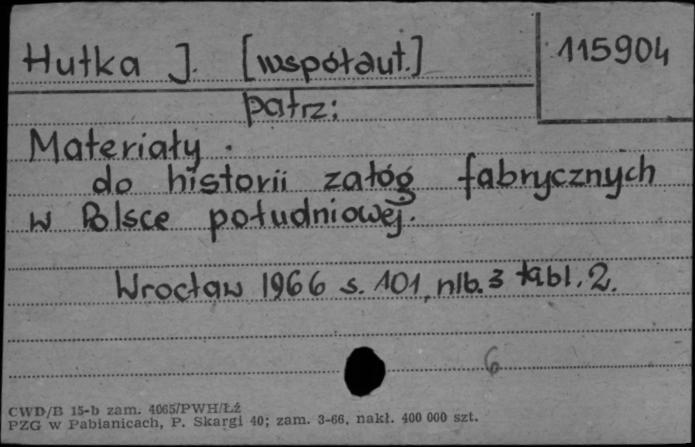 Hutka J. [współaut.] 115904
patrz:
Materiały .
do historii załóg fabrycznych
w Polsce południowej.
Wrocław 1966 s. 101, nlb. 3 tabl. 2.
6
CWD/B 15-b zam. 4065/PWH/Łź
PZG w Pabianicach, P. Skargi 40; zam. 3-66, nakł. 400 000 szt.